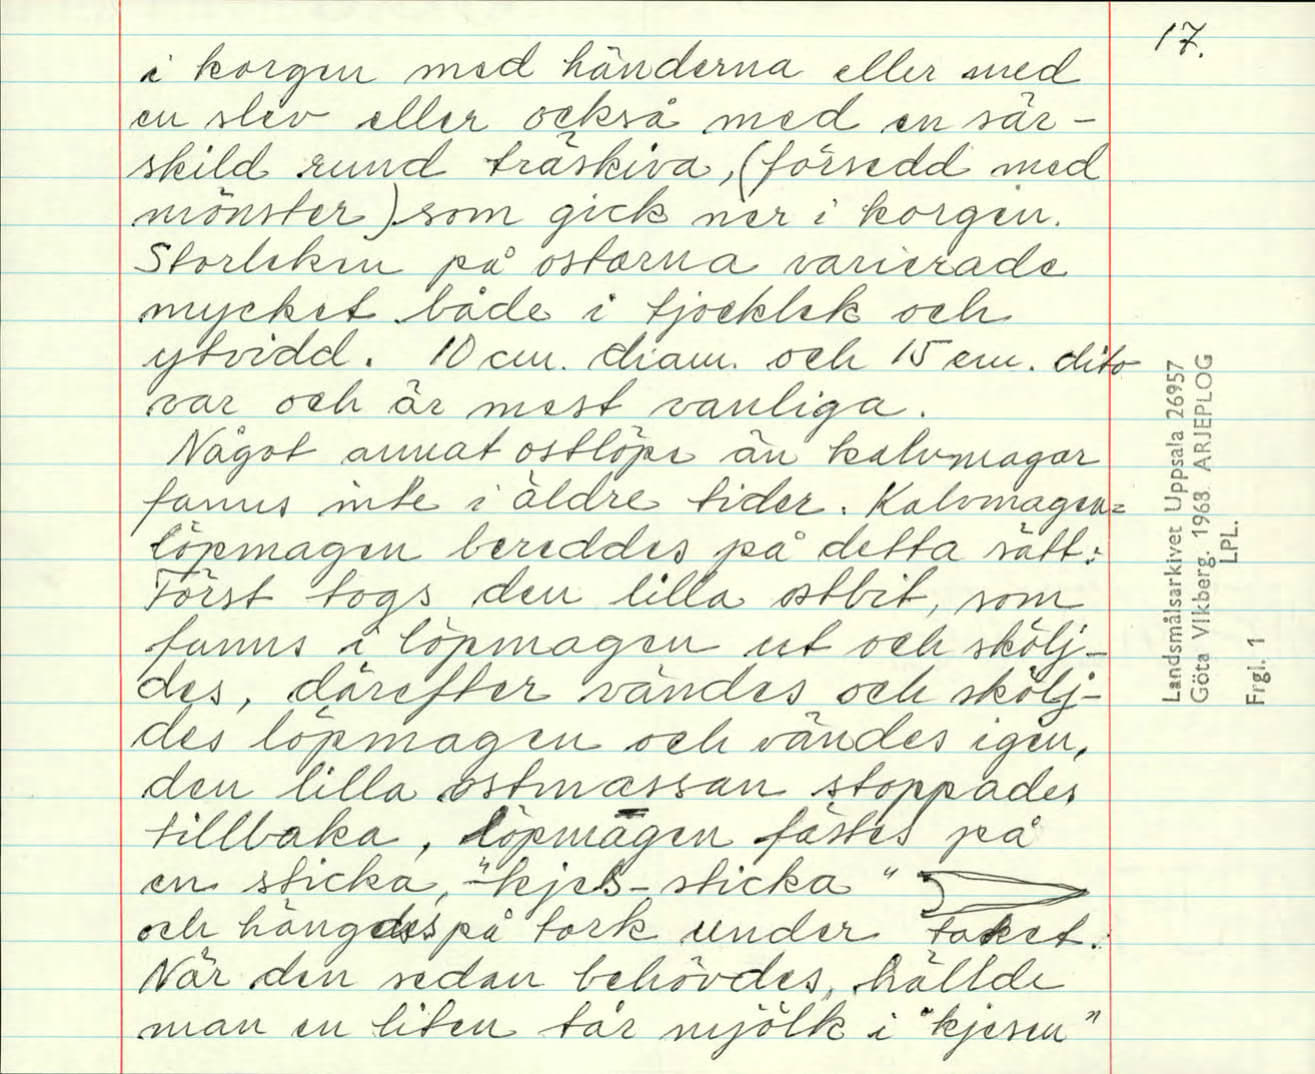 17.
i korgen med händerna eller med
en slev eller också med en sär-
skild rund träskiva, (försedd med
mönster) som gick ner i korgen.
Storleken på ostarna varierade
mycket både i tjocklek och
ytvidd. 10 cm. diam. och 15 cm. dito
var och är mest vanliga.
Något annat ostlöpe än kalvmagar
fanns inte i äldre tider. Kalvmagen=
löpmagen bereddes på detta sätt:
Först togs den lilla ostbit, som
fanns i löpmagen ut och skölj-
des, därefter vändes och skölj-
des löpmagen och vändes igen,
den lilla ostmassan stoppades
tillbaka, löpmagen fästes på
en sticka, "kjes-sticka"
och hängdes på tork under taket.
När den sedan behövdes, hällde
man en liten tår mjölk i "kjesen"
Landsmålsarkivet Uppsala 26957
Göta Vikberg. 1968. ARJEPLOG
LPL.
Frgl. 1